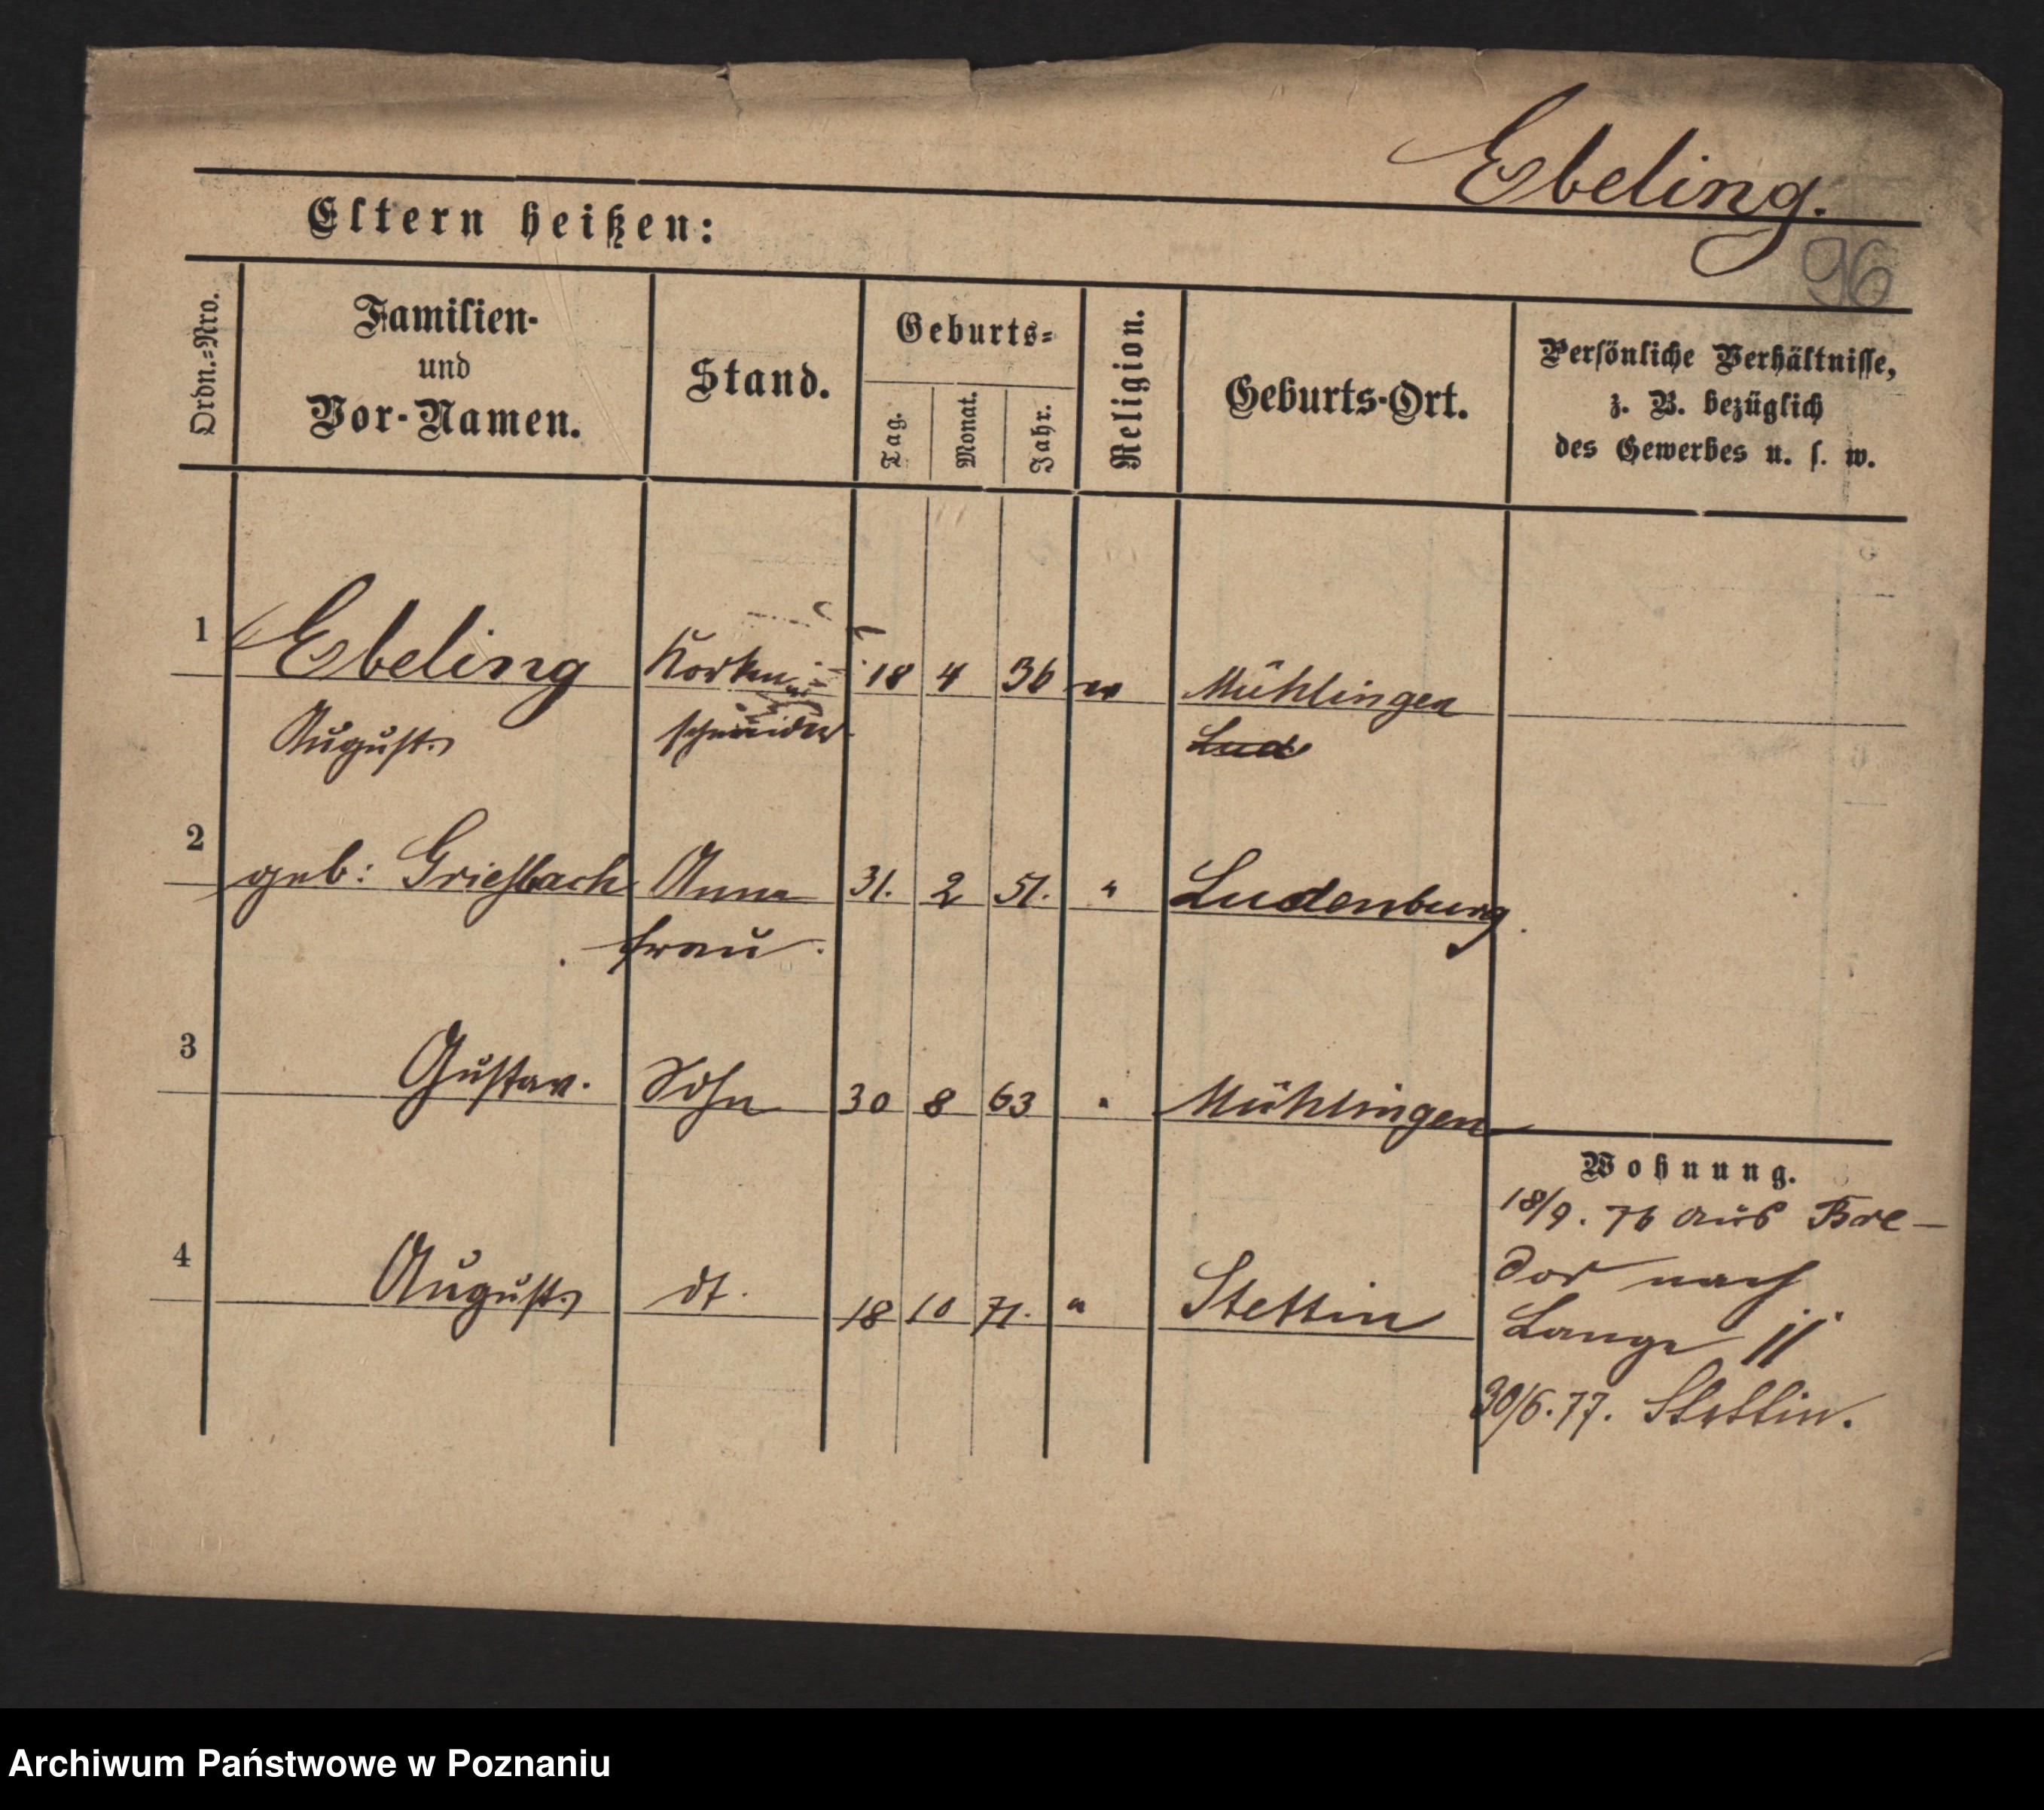 Ebeling.
96
Eltern heißen:
Ordn.=Nro.
Familien-
und
Vor-Namen.
Stand.
Geburts=
Tag.
Monat.
Jahr.
Religion.
Geburts-Ort.
Persönliche Verhältnisse,
z. B. bezüglich
des Gewerbes u. s. w.
1 Ebeling Korken 18 4 36 ev Mühlingen
August schneider Lud
2 geb: Griesbach Anna 31. 2 51. " Ludenburg.
Frau.
3 Gustav. Sohn 30 8 63 " Mühlingen
Wohnung.
18/9. 76 aus Bre-
dow nach
4 August dt. 18 10 71. " Stettin
Lange 11
30/6. 77. Stettin.
Archiwum Państwowe w Poznaniu